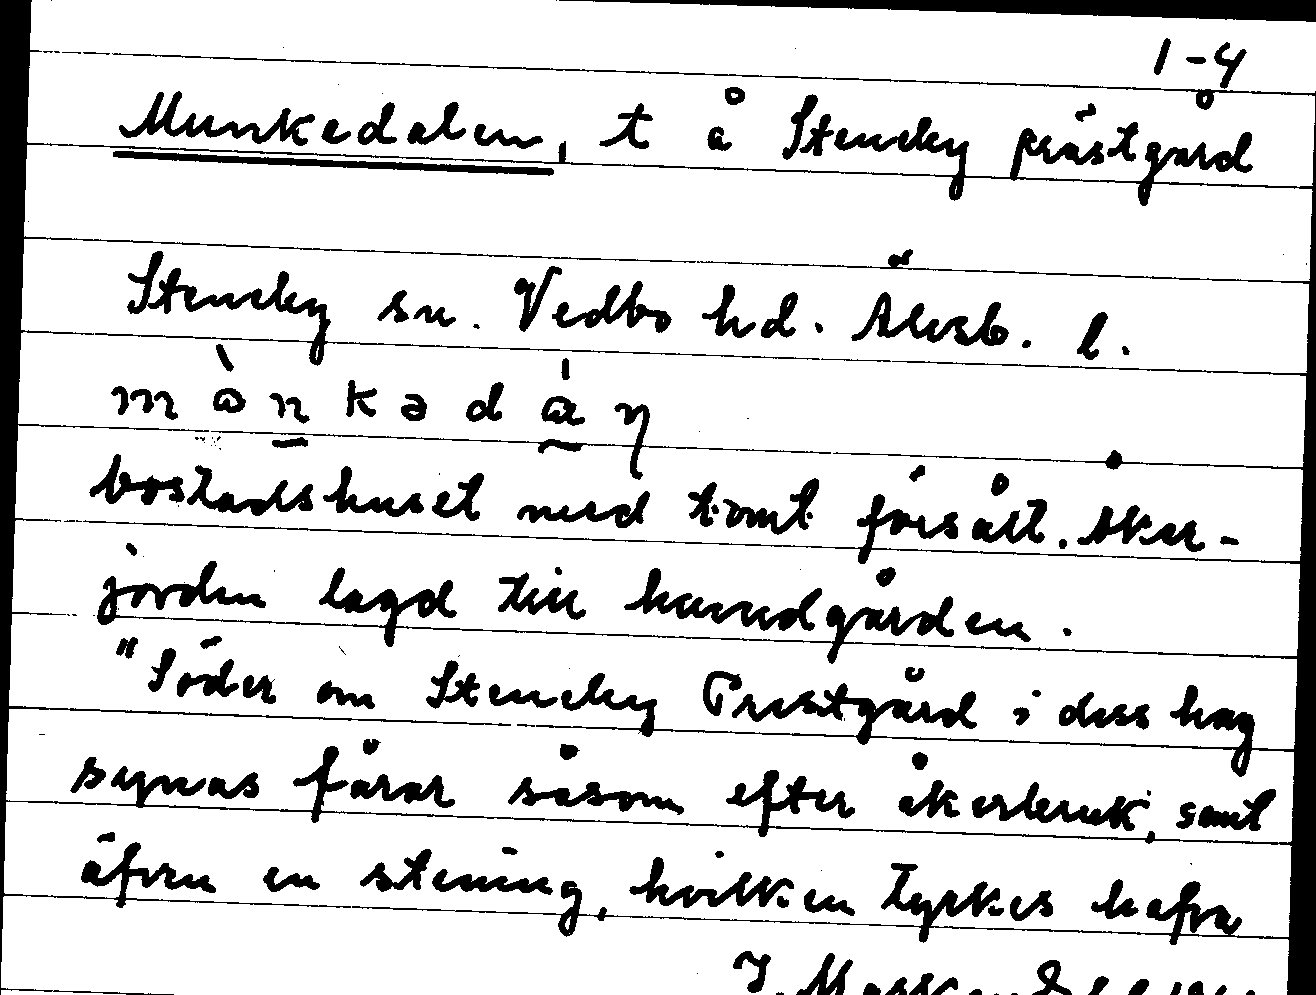 1-4
Munkedalen, t å Steneby prästgård
Steneby sn. Vedbo hd. Älvsb. l.
bostadshuset med tomt försålt. Åker-
jorden lagd till huvudgården.
"Söder om Steneby Prestgård i dess hag
synas fårar såsom efter åkerbruk, samt
äfven en stening, hvilken tyckes hafva